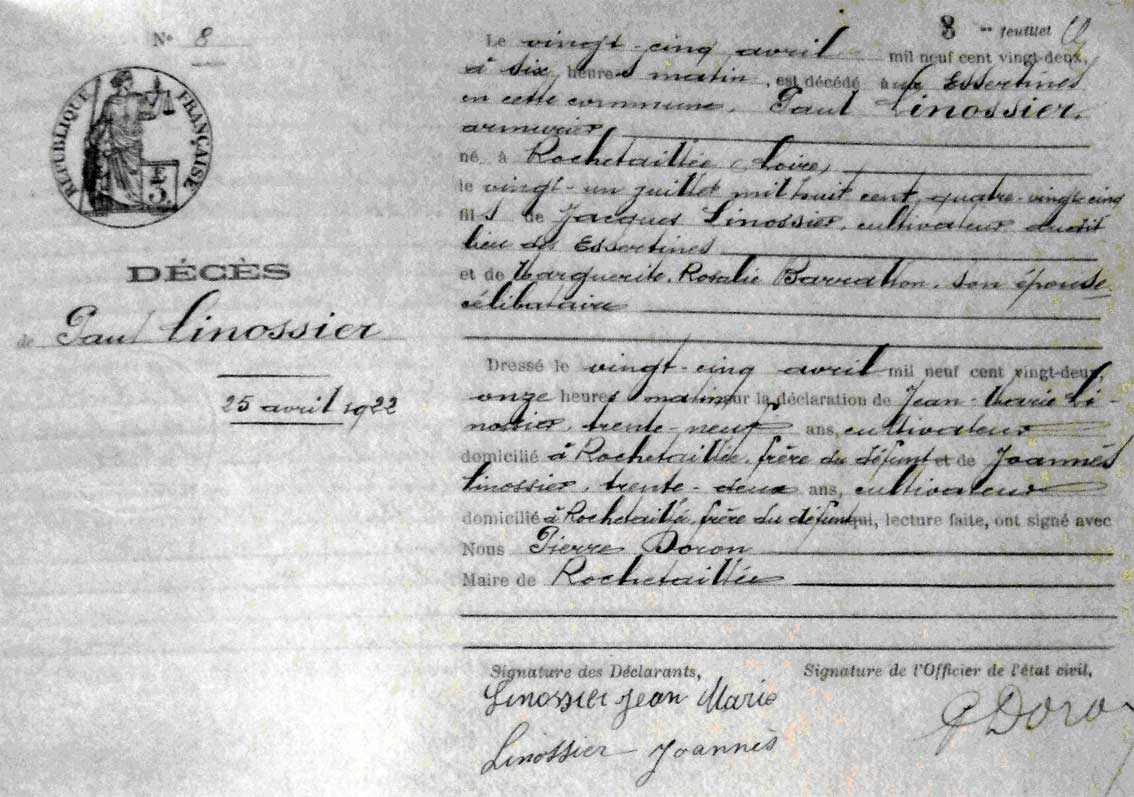 N° 8
8 e feuillet
RÉPUBLIQUE FRANÇAISE
DÉCÈS
de Paul Linossier
25 avril 1922
Le vingt-cinq avril mil neuf cent vingt-deux,
à six heures matin, est décédé aux Essertines
en cette commune, Paul Linossier,
armurier
né à Rochetaillée (Loire)
le vingt-un juillet mil huit cent quatre-vingt-cinq
fils de Jacques Linossier, cultivateur audit
lieu des Essertines
et de Marguerite Rosalie Barrallon, son épouse
célibataire
Dressé le vingt-cinq avril mil neuf cent vingt-deux,
onze heures matin sur la déclaration de Jean-Marie Li-
nossier, trente-neuf ans, cultivateur
domicilié à Rochetaillée, frère du défunt et de Joannès
Linossier, trente-deux ans, cultivateur
domicilié à Rochetaillée, frère du défunt qui, lecture faite, ont signé avec
Nous Pierre Doron
Maire de Rochetaillée
Signature des Déclarants,
Signature de l'Officier de l'état civil,
Linossier Jean Marie
Linossier Joannès
P Doron